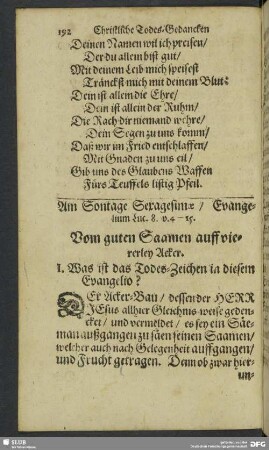 192 Christliche Todes-Gedancken
Deinen Namen wil ich preisen/
Der du allein bist gut/
Mit deinem Leib mich speisest
Tränckst mich mit deinem Blut:
Dem ist allein die Ehre/
Dem ist allein der Ruhm/
Die Rach dir niemand wehre/
Dein Segen zu uns komm/
Daß wir im Fried entschlaffen/
Mit Gnaden zu uns eil/
Gib uns des Glaubens Waffen
Fürs Teuffels listig Pfeil.
Am Sontage Sexagesimæ / Evange-
lium Luc. 8. v. 4 – 15.
Vom guten Saamen auff vie-
rerley Acker.
1. Was ist das Todes-Zeichen in diesem
Evangelio?
DEr Acker-Bau / dessen der HERR
JEsus allhier Gleichnis-weise geden-
cket / und vermeldet / es sey ein Säe-
man außgangen zu säen seinen Saamen/
welcher auch nach Gelegenheit auffgangen/
und Frucht getragen. Denn ob zwar hier-
un-
SLUB
DFG